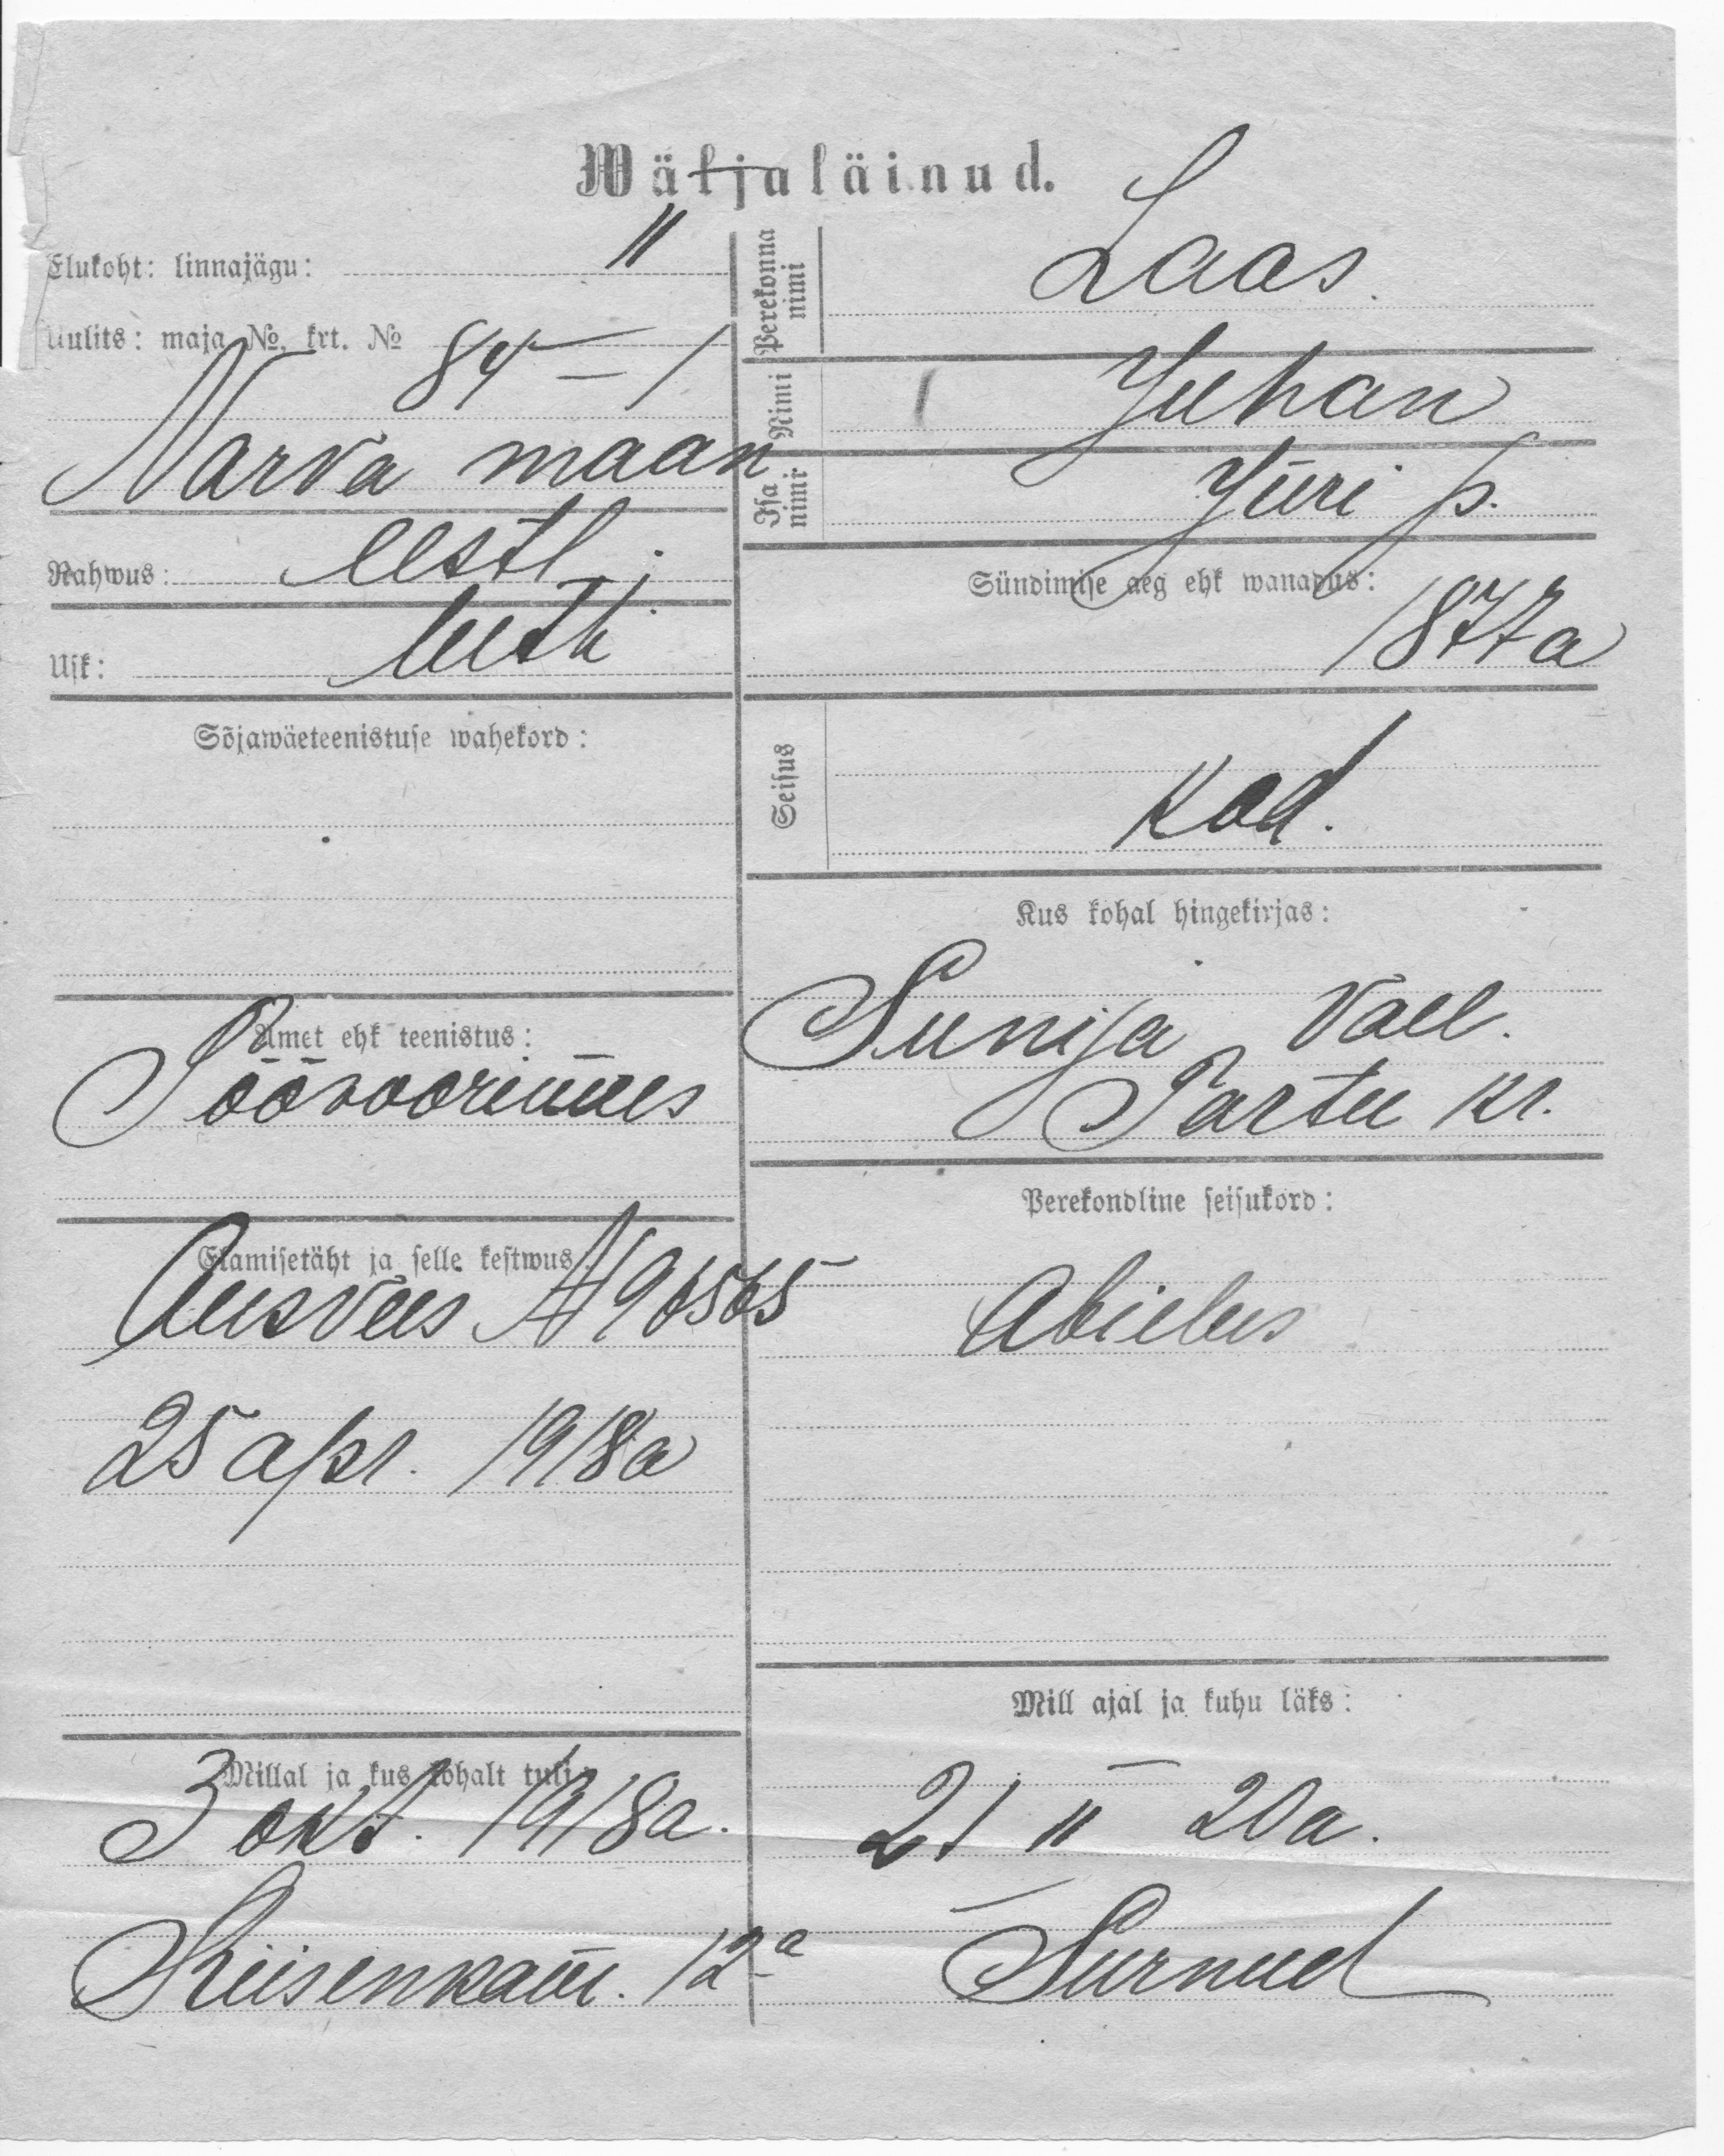 Wäljaläinud.
Elukoht: linnajägu: II
Uulits: maja No. krt. No 84 – 1
Narva maan
Rahwus: eestl.
Usk: luth.
Sõjawäeteenistuse wahekord:
Amet ehk teenistus:
Töövoorimees
Elamisetäht ja selle kestwus:
Ausveis A 196565
25 apr. 1918a
Millal ja kus kohalt tuli:
3 okt. 1918a.
12a
Perekonna nimi
Laas.
Nimi
Juhan
Isa nimi
Jüri p.
Sündimise aeg ehk wanadus:
1877a
Seisus
Kod.
Kus kohal hingekirjas:
Sunja vall.
Tartu kr.
Perekondline seisukord:
Abielus
Mill ajal ja kuhu läks:
21 II 20a.
Surnud